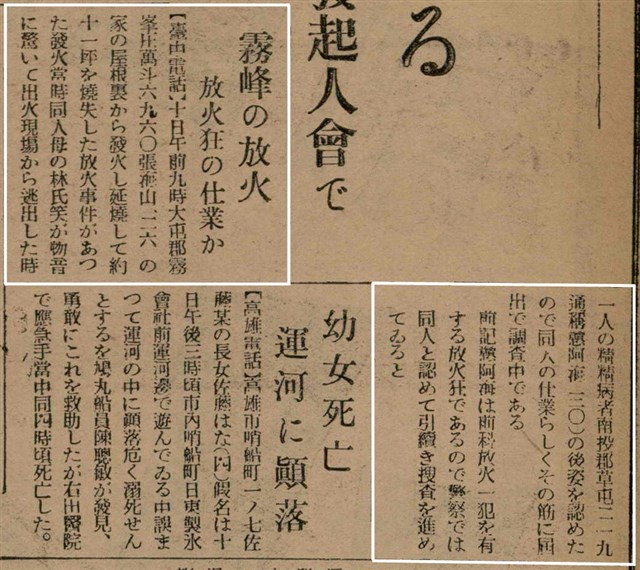 る
起人會で
霧峰の放火
放火狂の仕業か
【臺中電話】十日午前九時大屯郡霧
峯庄萬斗六九六〇張海山(二六)の
家の屋根裏から發火し延燒して約
十一坪を燒失した放火事件があつ
た發火當時同人母の林氏笑が物音
に驚いて出火現場から逃出した時
一人の精精病者南投郡草屯二一九
通稱戇阿海(三〇)の後姿を認めた
ので同人の仕業らしくその筋に屆
出で調査中である
前記戇阿海は前科放火一犯を有
する放火狂であるので警察では
同人と認めて引續き搜査を進め
てゐると
幼女死亡
運河に顚落
【高雄電話】高雄市哨船町一ノ七佐
藤某の長女佐藤はな(四)假名は十
日午後三時頃市内哨船町日東製氷
會社前運河邊で遊んでゐる中誤ま
つて運河の中に顚落危く溺死せん
とするを鳩丸船員陳聰敏が發見、
勇敢にこれを救助したが右田醫院
で應急手當中同四時頃死亡した。